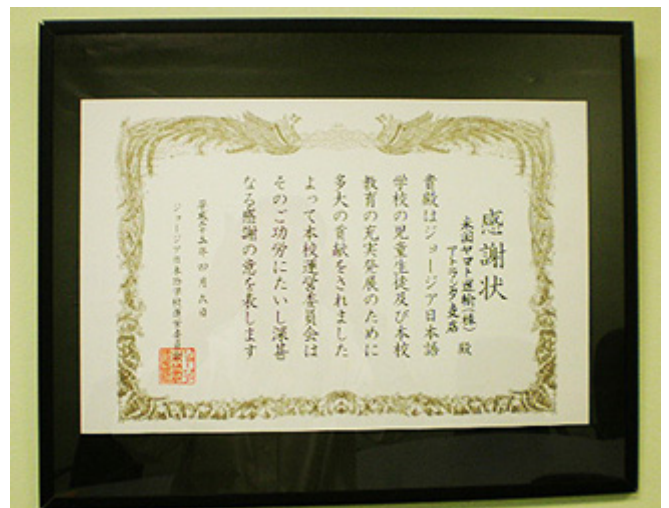 感謝状
米国ヤマト運輸(株)
アトランタ支店 殿
貴殿はジョージア日本語
学校の児童生徒及び本校
教育の充実発展のために
多大の貢献をされました
よって本校運営委員会は
そのご功労にたいし深甚
なる感謝の意を表します
平成二十五年四月六日
ジョージア日本語学校運営委員